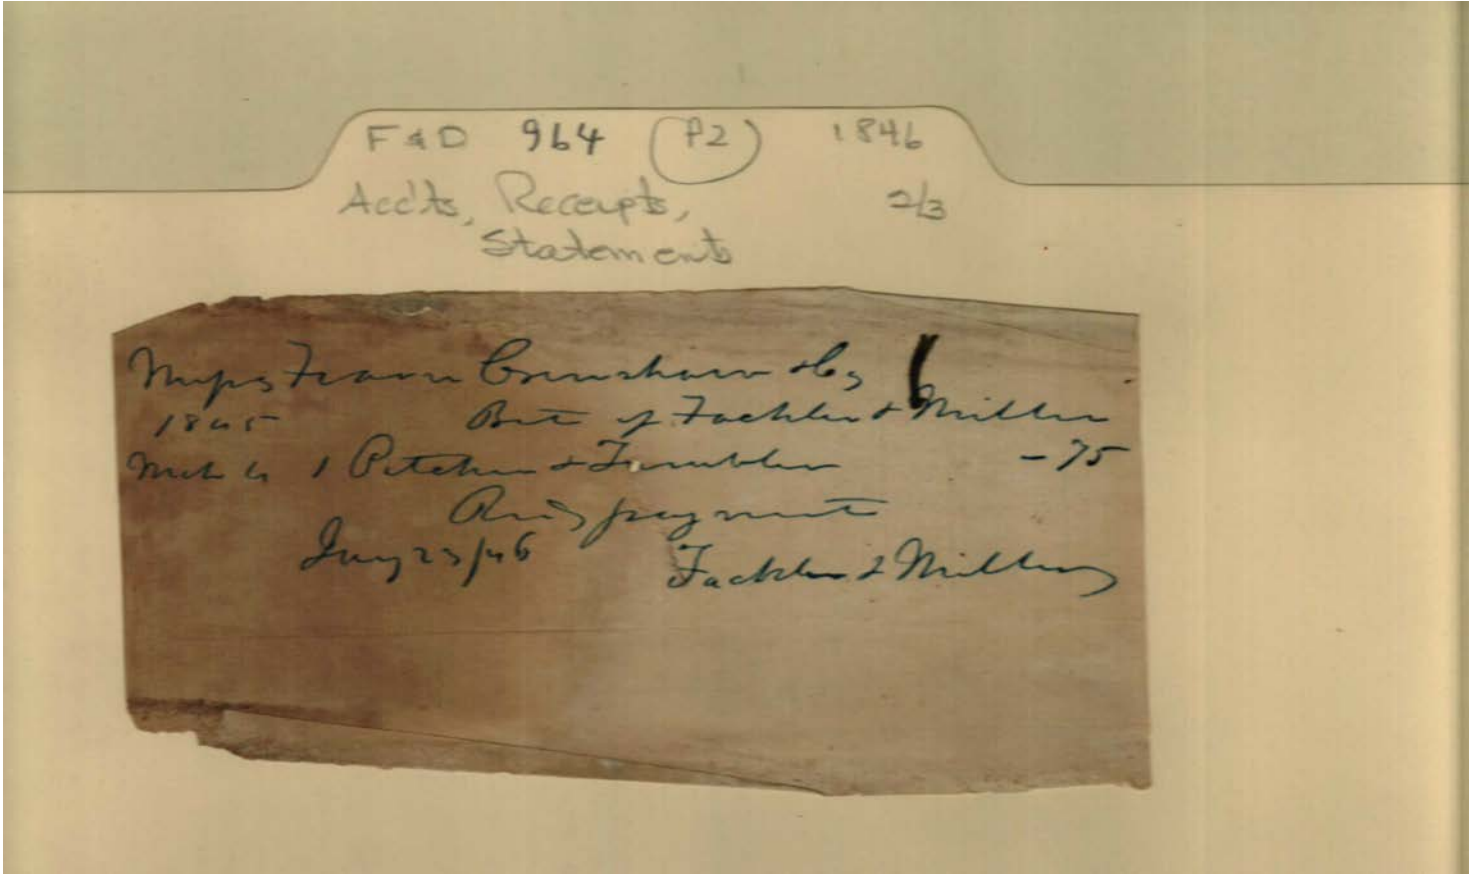 F & D 964 (P2) 1846
Acc'ts, Receipts, 2/3
Statements
Crenshaw & Co
1845 Bot of Fackler & Miller
1 Pitcher & Tumbler - 75
payment
Jany 23/46 Fackler & Miller